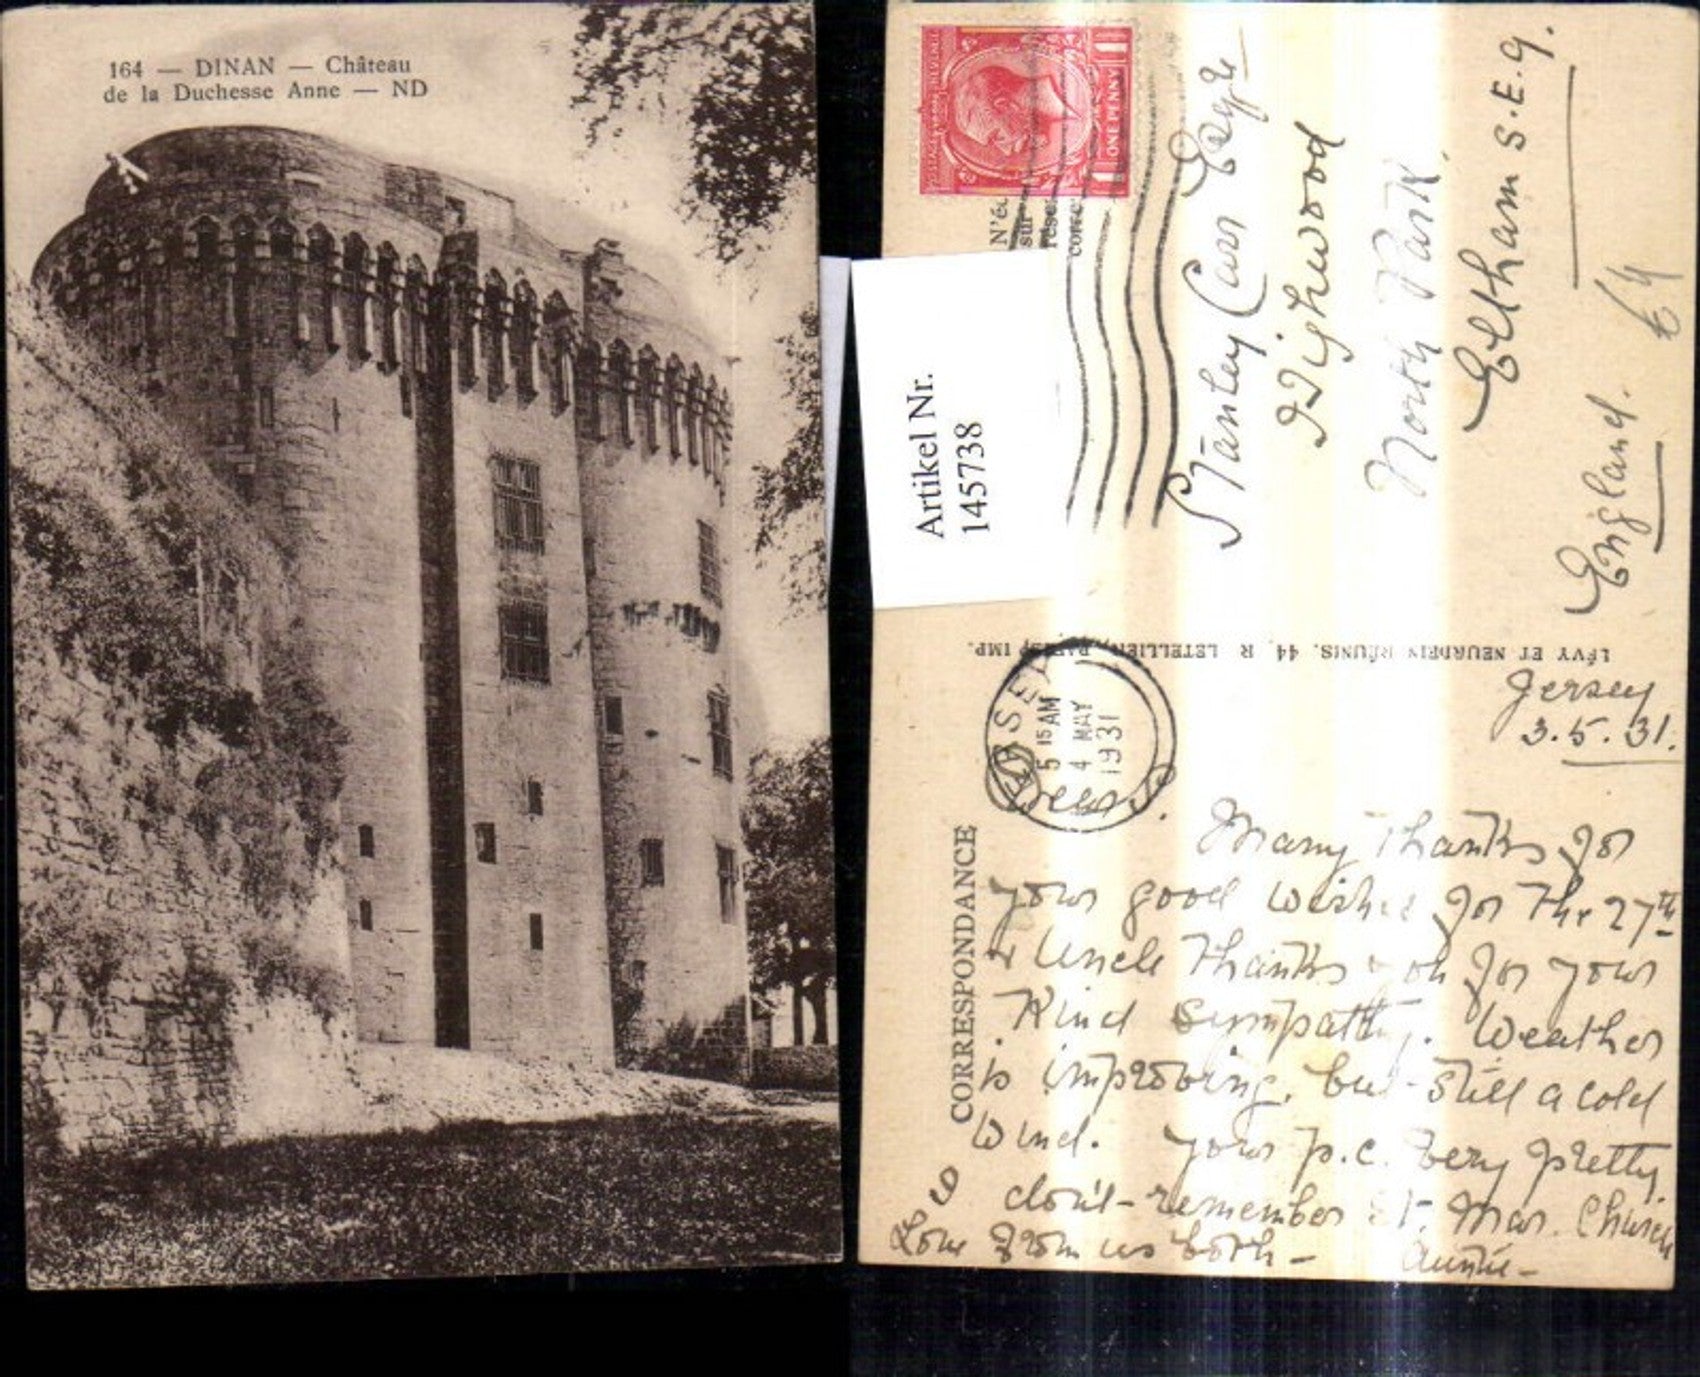 164 — DINAN — Château
de la Duchesse Anne — ND
POSTAGE REVENUE
ONE PENNY
N'éc
sur
rése
conce
Artikel Nr.
145738
Stanley Carr Esqre
Highwood
North Park,
Eltham S.E.9.
England.
LÉVY ET NEURDEIN RÉUNIS, 44, R. LETELLIER, PARIS, IMP.
JERSEY
5 15 AM
4 MAY
1931
CORRESPONDANCE
Jersey
3.5.31.
Many thanks for
your good wishes for the 27th
& Uncle thanks you for your
kind sympathy. Weather
is improving, but still a cold
wind. Your p.c. very pretty.
don't remember St. Mar. Church
Love from us both –
Auntie –